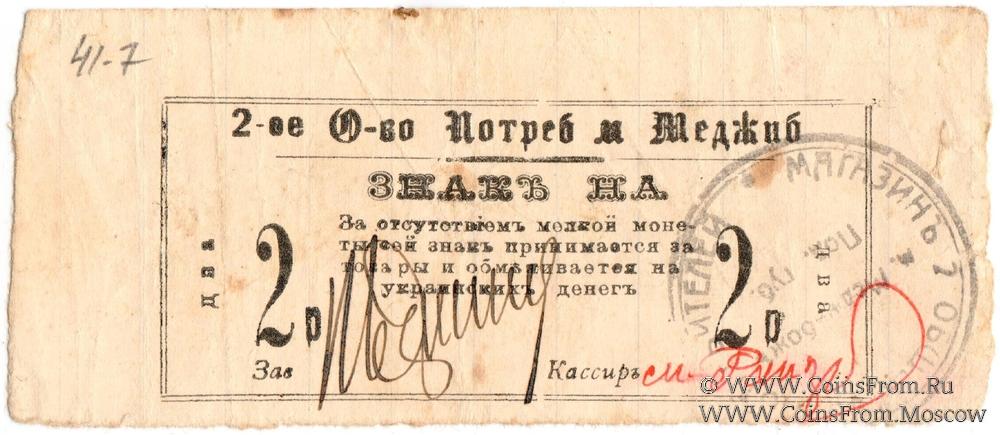 41-7
2-ое О-во Потреб м Меджиб
ЗНАКЪ НА
За отсутствіемъ мелкой моне-
ты сей знакъ принимается за
товары и обмѣнивается на
украинскихъ денег
два
2 р
2 р
два
Зав
Кассиръ
МАГАЗИНЪ 2 ОБЩ
Под. Губ.
© WWW.CoinsFrom.Ru
WWW.CoinsFrom.Moscow